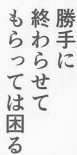 勝手に
終わらせて
もらっては困る